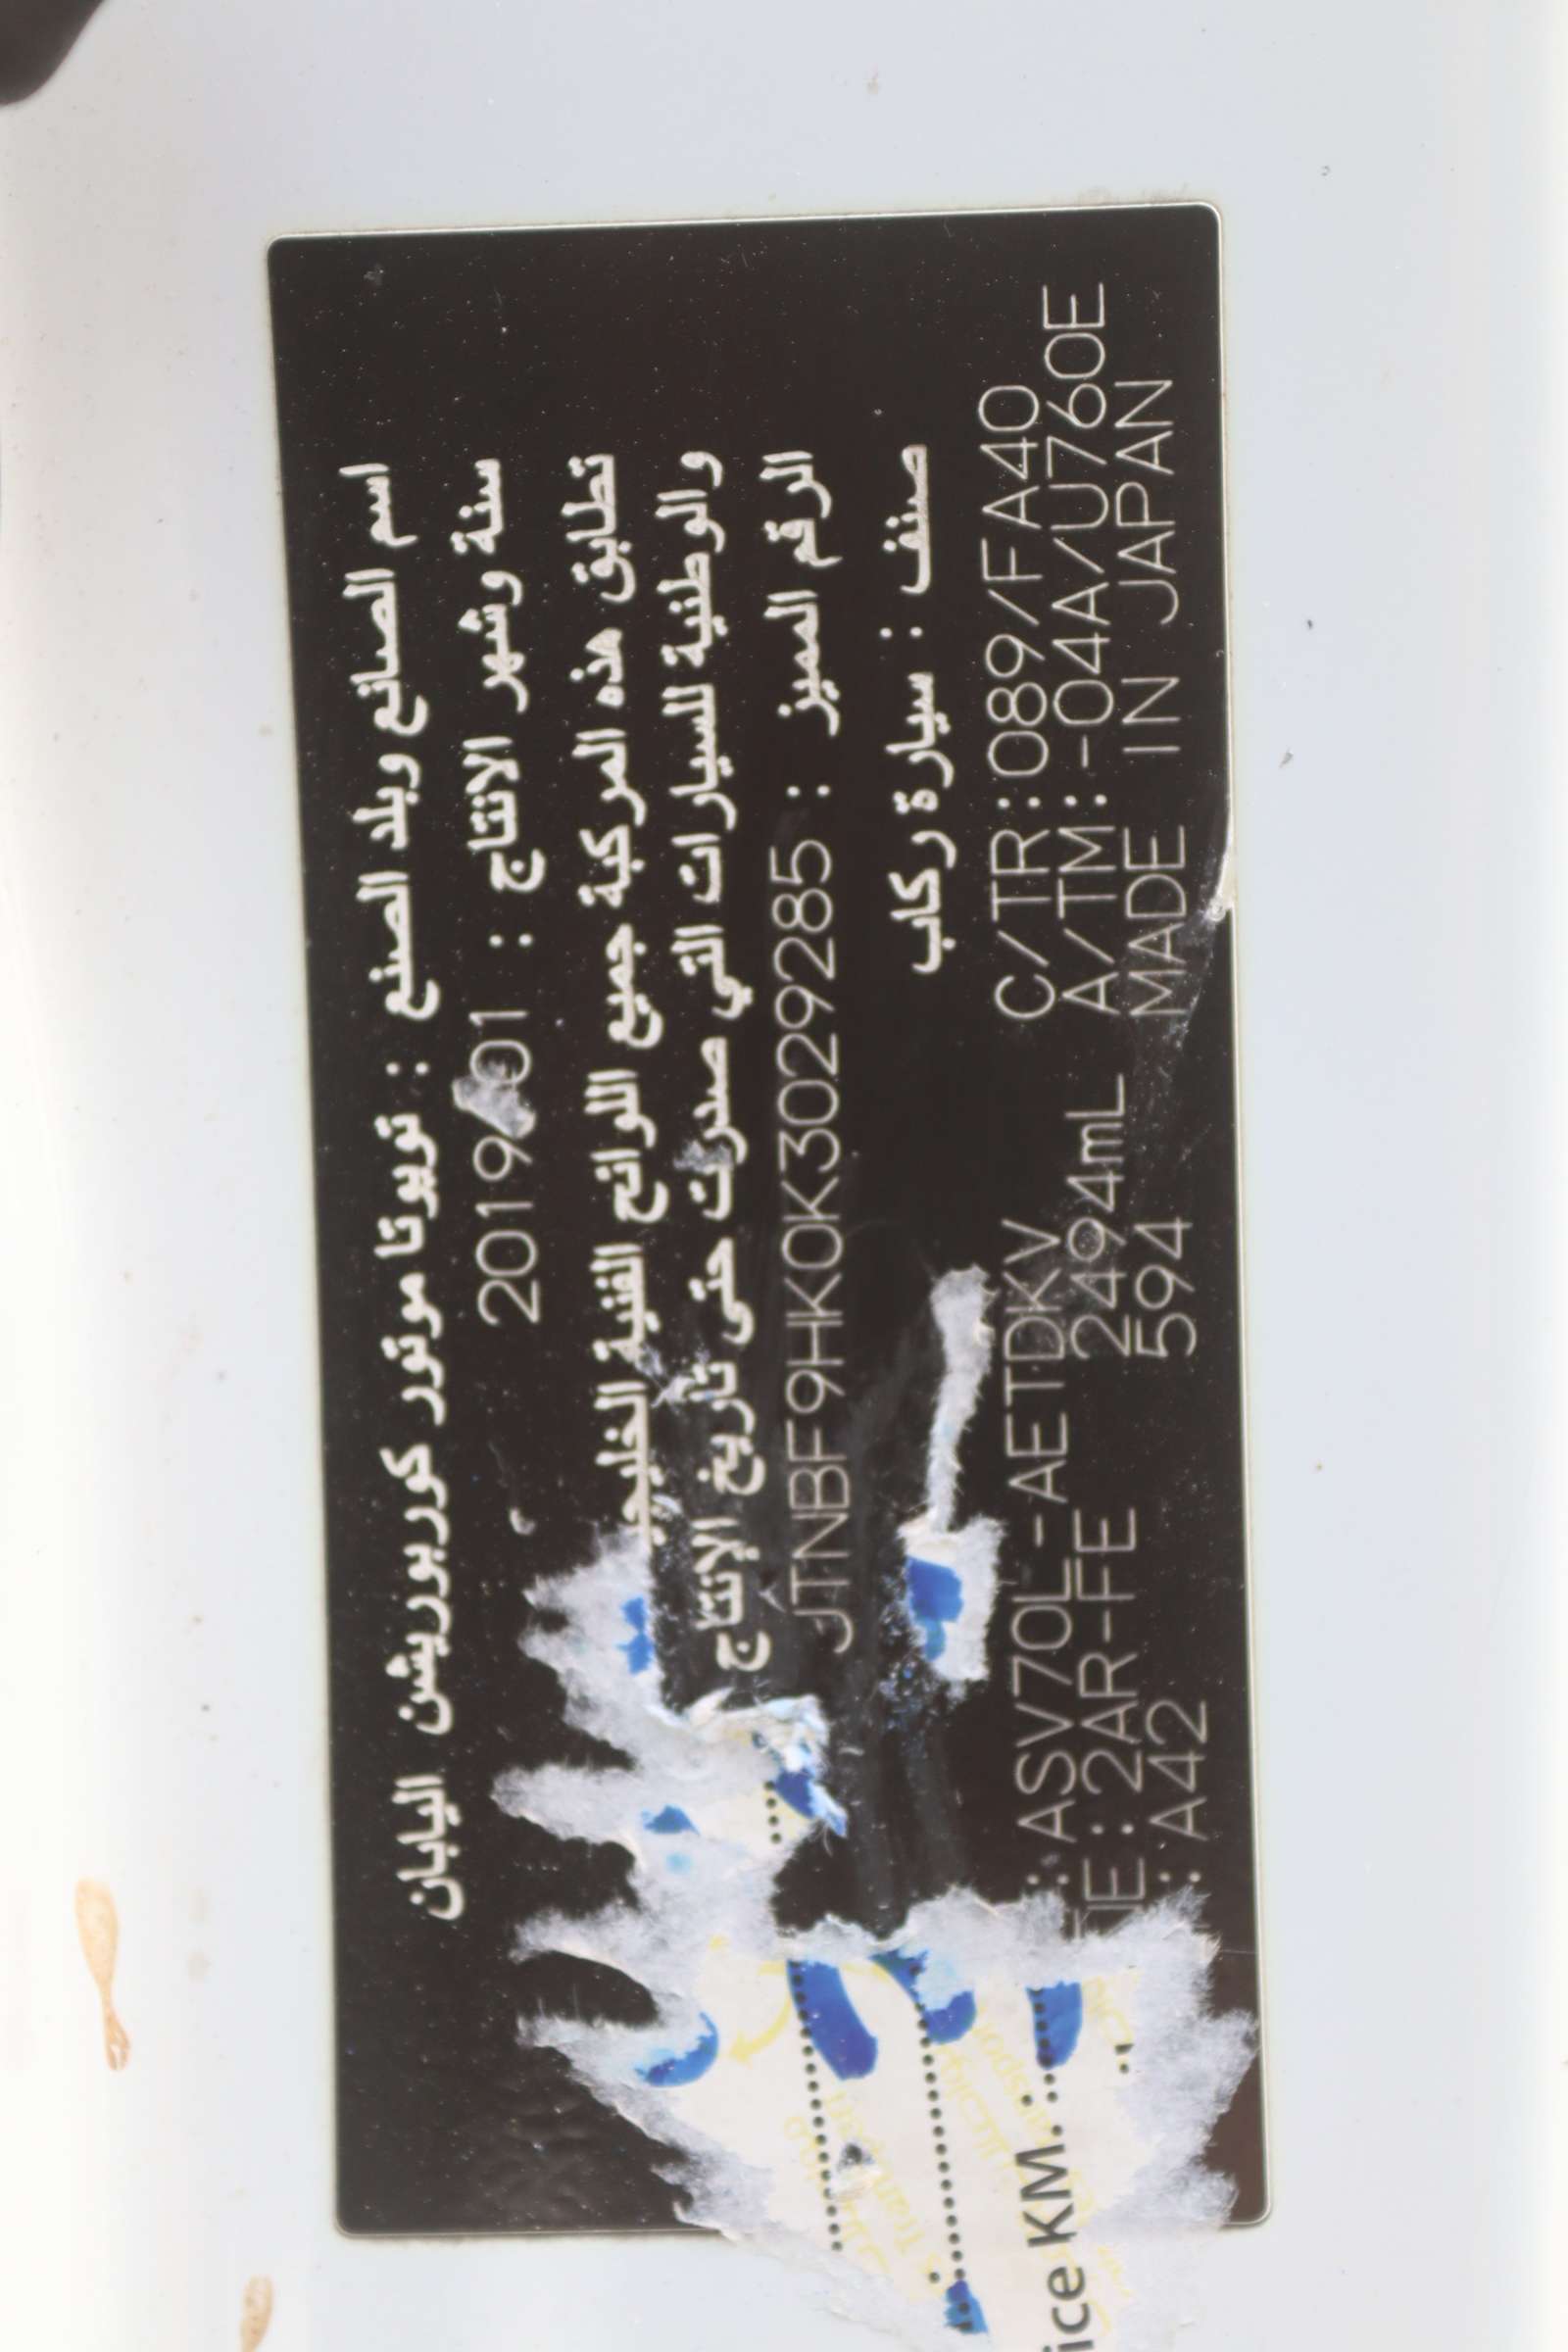 اسم الصانع وبلد الصنع : تويوتا موتور كوربوريشن اليابان
سنة وشهر الانتاج : 2019/01
تطابق هذه المركبة جميع اللوائح الفنية
والوطنية للسيارات التي صدرت حتى تاريخ الإنتاج
الرقم المميز : JTNBF9HK0K3029285
صنف : سيارة ركاب
: ASV70L-AETDKV C/TR:089/FA40
: 2AR-FE 2494mL A/TM:-04A/U760E
: A42 594 MADE IN JAPAN
KM. :